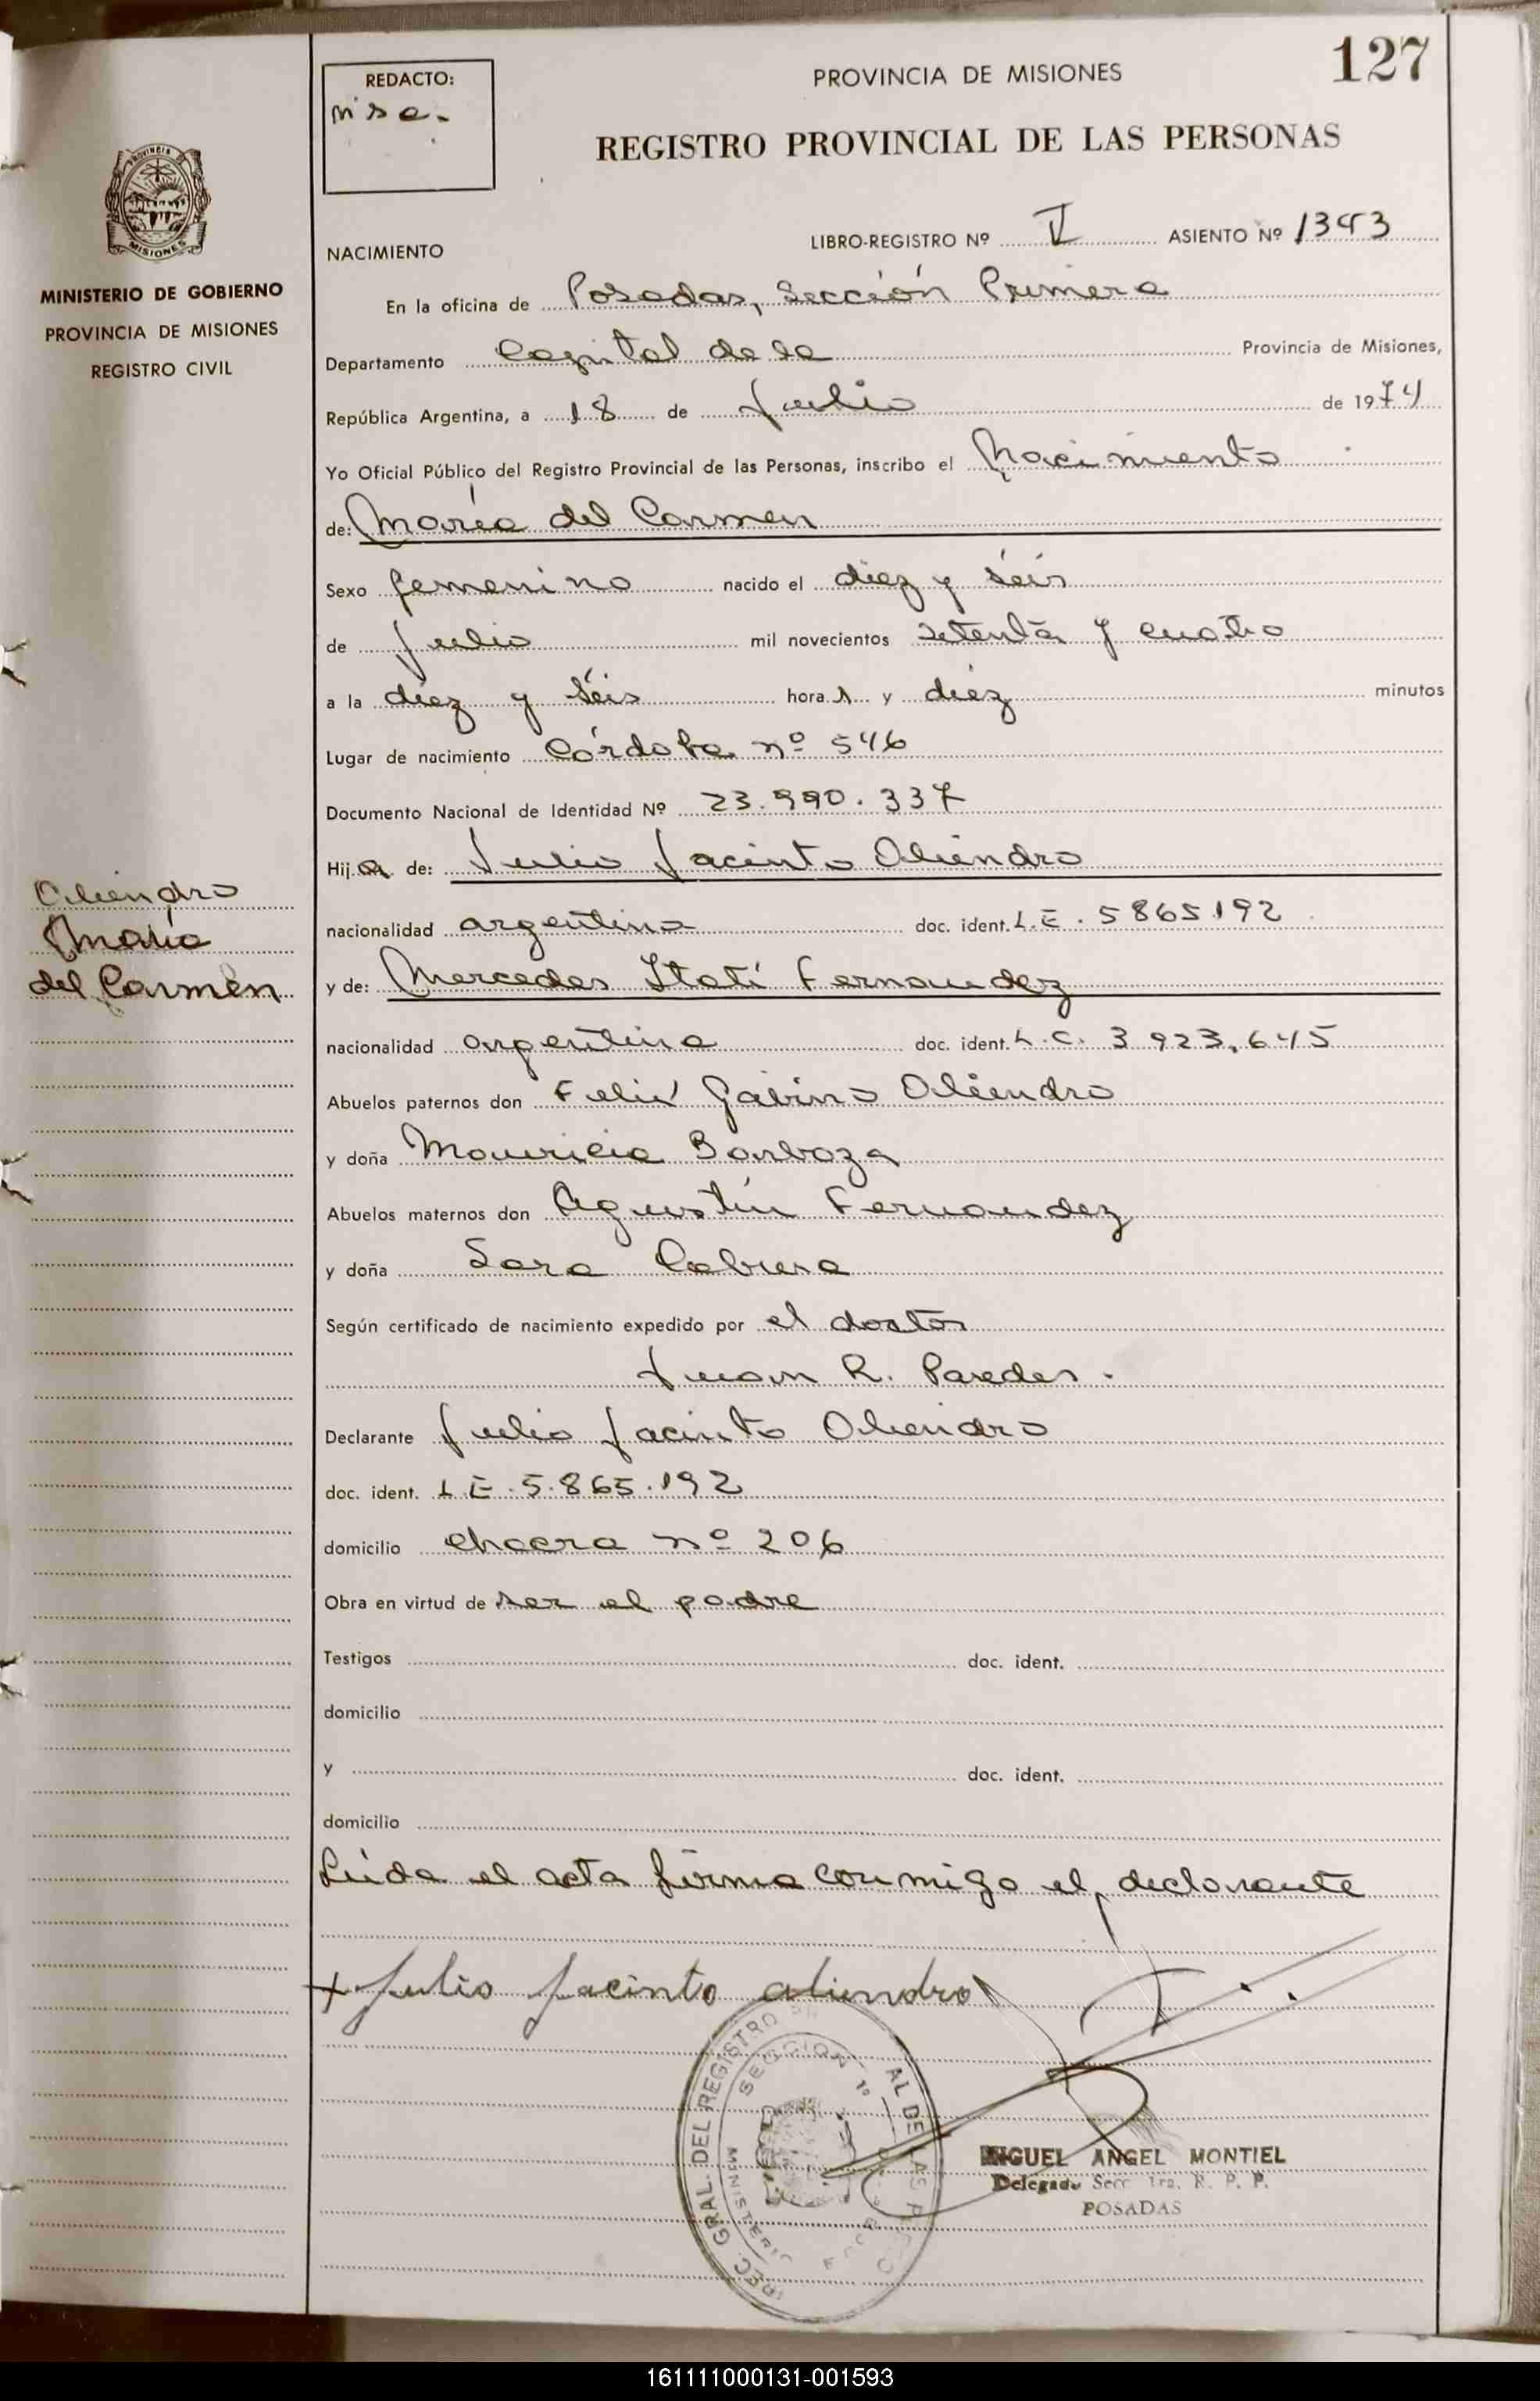 127
REDACTO:
PROVINCIA DE MISIONES
REGISTRO PROVINCIAL DE LAS PERSONAS
PROVINCIA DE
MISIONES
MINISTERIO DE GOBIERNO
PROVINCIA DE MISIONES
REGISTRO CIVIL
NACIMIENTO
LIBRO-REGISTRO Nº V ASIENTO Nº 1393
En la oficina de Posadas, Sección Primera
Departamento Capital de la Provincia de Misiones,
República Argentina, a 18 de Julio de 1974
Yo Oficial Público del Registro Provincial de las Personas, inscribo el Nacimiento
de: María del Carmen
Sexo femenino nacido el diez y séis
de Julio mil novecientos setenta y cuatro
a la diez y séis hora s y diez minutos
Lugar de nacimiento Córdoba nº 546
Documento Nacional de Identidad Nº 23.990.337
Hija de: Julio Jacinto Aliendro
Aliendro
María
del Carmen
nacionalidad argentino doc. ident. L.E. 5865192
y de: Mercedes Itatí Fernandez
nacionalidad argentina doc. ident. L.C. 3.923.645
Abuelos paternos don Gabino Aliendro
y doña Mauricia Barboza
Abuelos maternos don Agustín Fernandez
y doña Sara Cabrera
Según certificado de nacimiento expedido por el doctor
Juan R. Paredes.
Declarante Julio Jacinto Aliendro
doc. ident. L.E. 5.865.192
domicilio chacra nº 206
Obra en virtud de ser el padre
Testigos doc. ident.
domicilio
y doc. ident.
domicilio
Leída el acta firma conmigo el declarante
+ Julio Jacinto aliendro
REC. GRAL. DEL REGISTRO AL DE LAS PE
SECCION 1º
MINISTERIO
MIGUEL ANGEL MONTIEL
Delegado Secc 1ra. R. P. P.
POSADAS
161111000131-001593